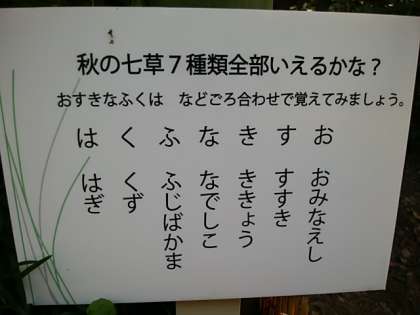 秋の七草7種類全部いえるかな？
おすきなふくは　などごろ合わせで覚えてみましょう。
お　す　き　な　ふ　く　は
おみなえし
すすき
ききょう
なでしこ
ふじばかま
くず
はぎ